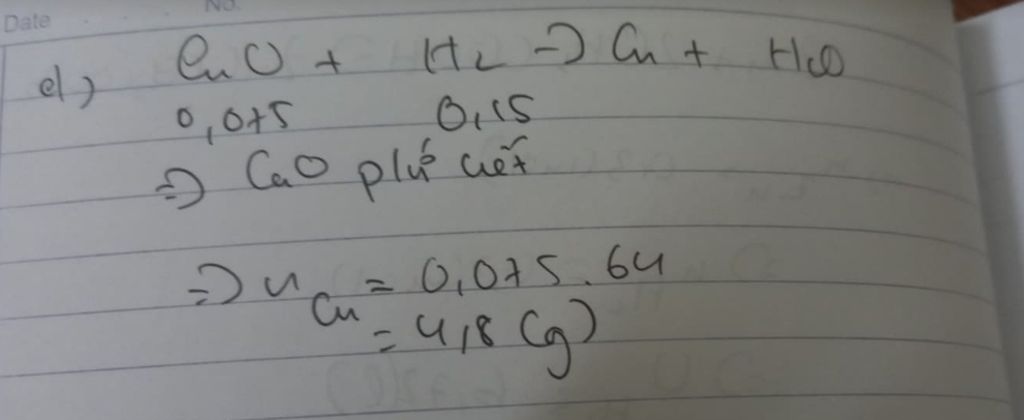 Date No.
d) CuO + H2 → Cu + H2O
0,075 0,15
⇒ CuO pứ hết
⇒ m Cu = 0,075 . 64
= 4,8 (g)